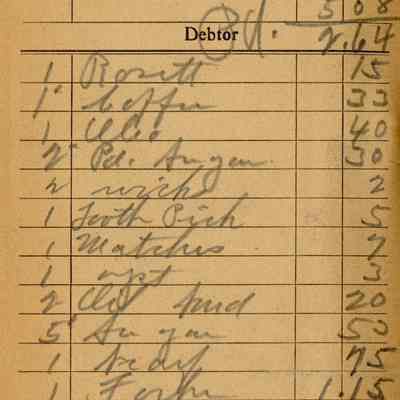 5 08
Debtor Pd. 2.64
1 Rosett 15
1" Coffee 33
1 Oleo 40
2" Pd. Sugar 30
2 wicks 2
1 Tooth Pick 5
1 Matches 7
1 3
2 20
5" Sugar 50
1 75
1 1.15